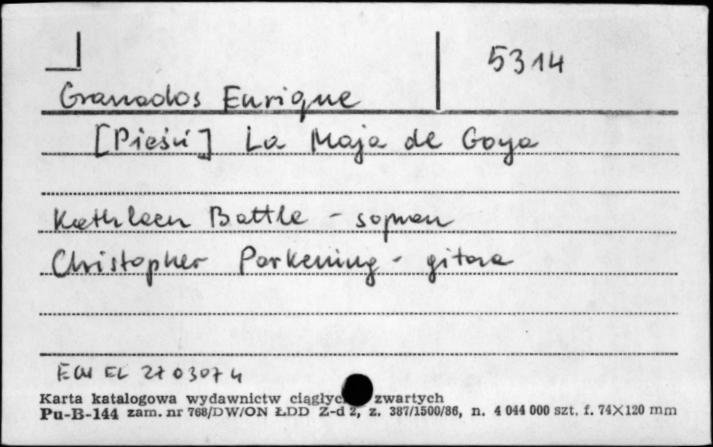 5314
Granados Enrique
[Pieśń] La Maja de Goya
Kathleen Battle - sopran
Christopher Parkening - gitara
EW EL 27 0307 4
Karta katalogowa wydawnictw ciągłyc zwartych
Pu-B-144 zam. nr 768/DW/ON ŁDD Z-d 2, z. 387/1500/86, n. 4 044 000 szt. f. 74X120 mm